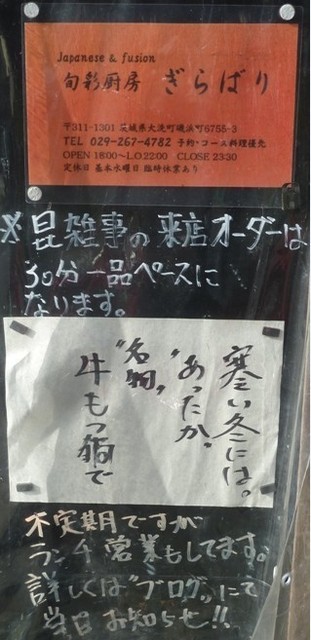 Japanese & fusion
旬彩厨房 ぎらばり
〒311-1301 茨城県大洗町磯浜町6755-3
TEL 029-267-4782 予約・コース料理優先
OPEN 18:00～L.O22:00 CLOSE 23:30
定休日 基本水曜日 臨時休業あり
※昆雑事の来店オーダーは
30分一品ペースに
なります。
寒い冬には。
"あったか。
"名物"
牛もつ鍋で
不定期ですが
ランチ営業もしてます。
詳しくは"ブログ"にて
当日お知らせ!!